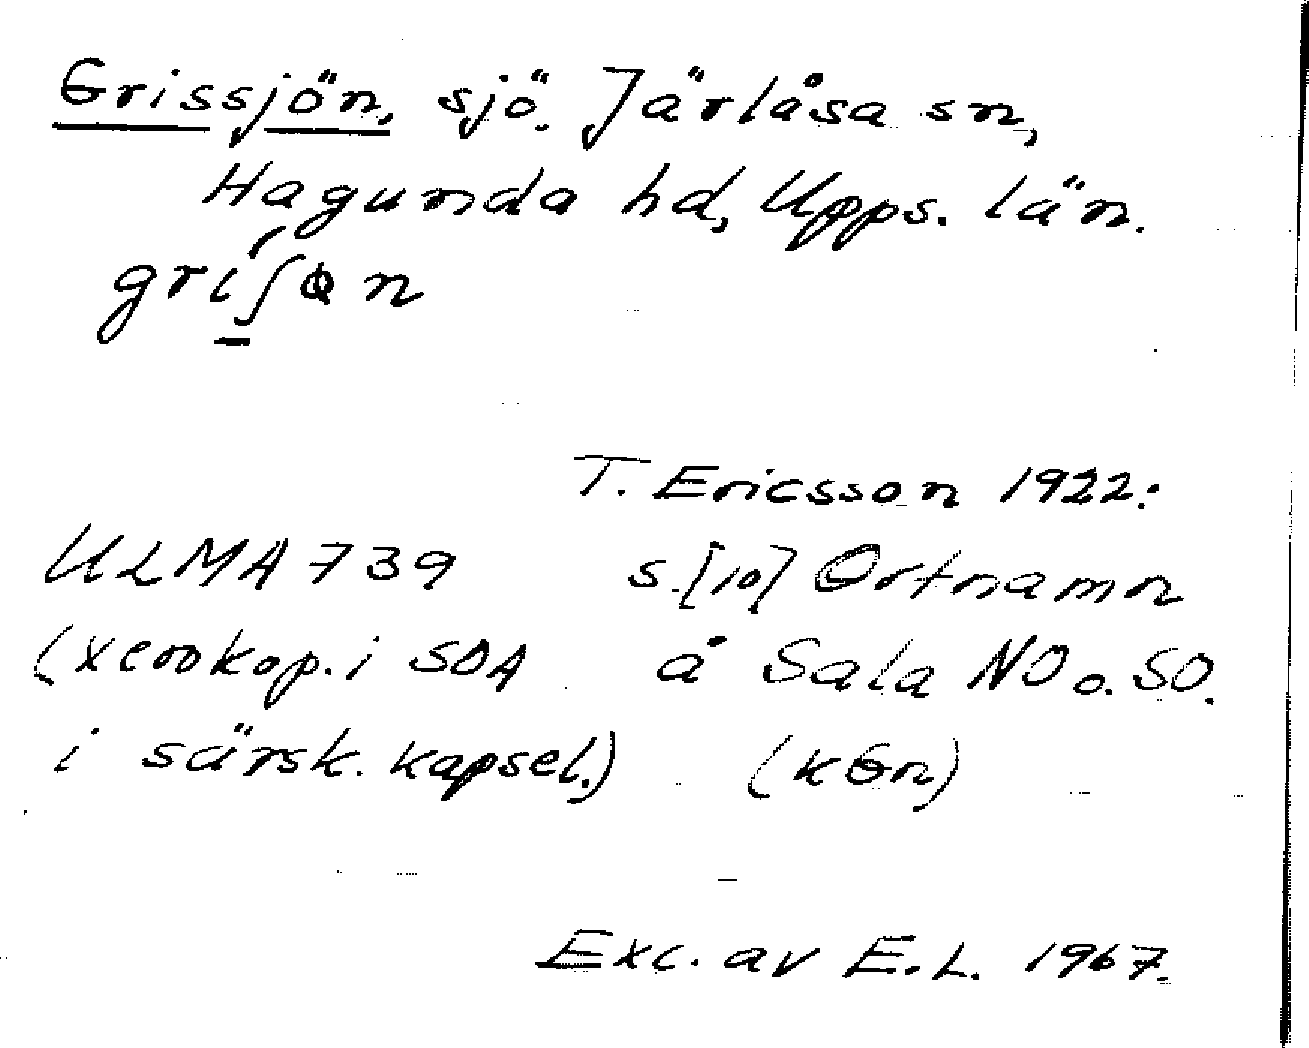 Grissjön, sjö. Järlåsa sn,
Hagunda hd, Upps. län.
T. Ericsson 1922:
ULMA 739 s. [10] Ortnamn
(xerokop. i SOA å Sala NO o. SO.
i särsk. kapsel.) (kGn)
Exc. av E.L. 1967.